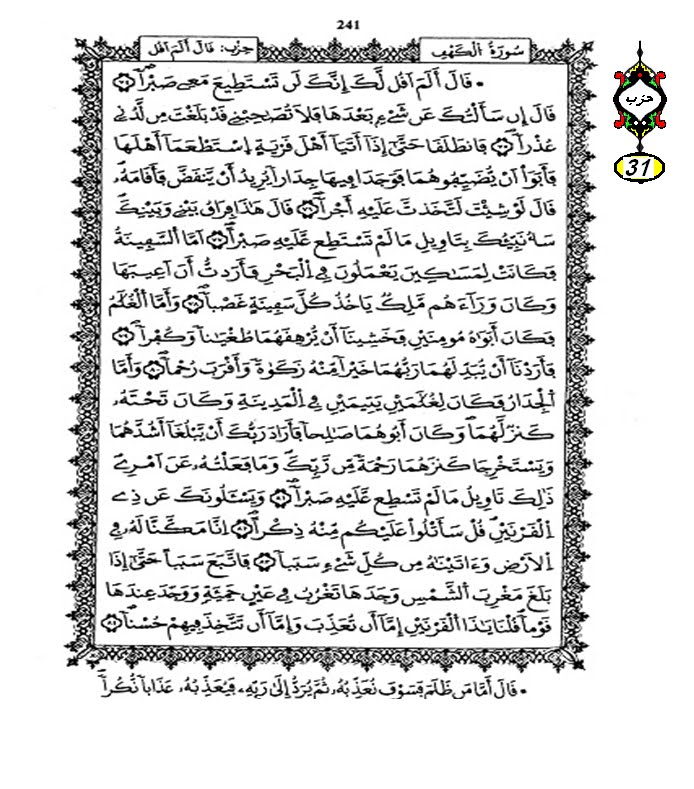 241
سُورَةُ الْكَهْفِ
حِزْب: قَالَ أَلَمَ أَقُل
حزب
31
• قَالَ أَلَمَ أَقُل لَّكَ إِنَّكَ لَن تَسْتَطِيعَ مَعِے صَبْراًۖ
قَالَ إِن سَأَلْتُكَ عَن شَےْءِۢ بَعْدَهَا فَلَا تُصَٰحِبْنِے قَدْ بَلَغْتَ مِن لَّدُنِے
عُذْراًۖ فَانطَلَقَا حَتَّىٰٓ إِذَآ أَتَيَآ أَهْلَ قَرْيَةٍ اِسْتَطْعَمَآ أَهْلَهَا
فَأَبَوَاْ اَنْ يُّضَيِّفُوهُمَا فَوَجَدَا فِيهَا جِدَاراً يُرِيدُ أَنْ يَّنقَضَّ فَأَقَامَهُۥ
قَالَ لَوْ شِئْتَ لَتَّخَذتَّ عَلَيْهِ أَجْراًۖ قَالَ هَٰذَا فِرَاقُ بَيْنِے وَبَيْنِكَۖ
سَأُنَبِّئُكَ بِتَاوِيلِ مَا لَمْ تَسْتَطِع عَّلَيْهِ صَبْراًۖ اَمَّا اَلسَّفِينَةُ
فَكَانَتْ لِمَسَٰكِينَ يَعْمَلُونَ فِے اِلْبَحْرِ فَأَرَدتُّ أَنَ اَعِيبَهَا
وَكَانَ وَرَآءَهُم مَّلِكٌ يَاخُذُ كُلَّ سَفِينَةٍ غَصْباًۖ وَأَمَّا اَلْغُلَٰمُ
فَكَانَ أَبَوَٰهُ مُومِنَيْنِ فَخَشِينَآ أَنْ يُّرْهِقَهُمَا طُغْيَٰناً وَكُفْراًۖ
فَأَرَدْنَآ أَنْ يُّبَدِّلَهُمَا رَبُّهُمَا خَيْراً مِّنْهُ زَكَوٰةً وَأَقْرَبَ رُحْماًۖ وَأَمَّا
اَلْجِدَارُ فَكَانَ لِغُلَٰمَيْنِ يَتِيمَيْنِ فِے اِلْمَدِينَةِ وَكَانَ تَحْتَهُۥ
كَنزٌ لَّهُمَاۖ وَكَانَ أَبُوهُمَا صَٰلِحاً فَأَرَادَ رَبُّكَ أَنْ يَّبْلُغَآ أَشُدَّهُمَا
وَيَسْتَخْرِجَا كَنزَهُمَا رَحْمَةً مِّن رَّبِّكَۖ وَمَا فَعَلْتُهُۥ عَنَ اَمْرِےۖ
ذَٰلِكَ تَاوِيلُ مَا لَمْ تَسْطِع عَّلَيْهِ صَبْراًۖ وَيَسْـَٔلُونَكَ عَن ذِے
اِلْقَرْنَيْنِۖ قُلْ سَأَتْلُواْ عَلَيْكُم مِّنْهُ ذِكْراًۖ اِنَّا مَكَّنَّا لَهُۥ فِے
اِلَارْضِ وَءَاتَيْنَٰهُ مِن كُلِّ شَےْءٍ سَبَباًۖ فَاتَّبَعَ سَبَباً حَتَّىٰٓ إِذَا
بَلَغَ مَغْرِبَ اَلشَّمْسِ وَجَدَهَا تَغْرُبُ فِے عَيْنٍ حَمِئَةٍ وَوَجَدَ عِندَهَا
قَوْماًۖ قُلْنَا يَٰذَا اَلْقَرْنَيْنِ إِمَّآ أَن تُعَذِّبَ وَإِمَّآ أَن تَتَّخِذَ فِيهِمْ حُسْناًۖ
• قَالَ أَمَّا مَن ظَلَمَ فَسَوْفَ نُعَذِّبُهُۥ ثُمَّ يُرَدُّ إِلَىٰ رَبِّهِۦ فَيُعَذِّبُهُۥ عَذَاباً نُّكُراًۖ